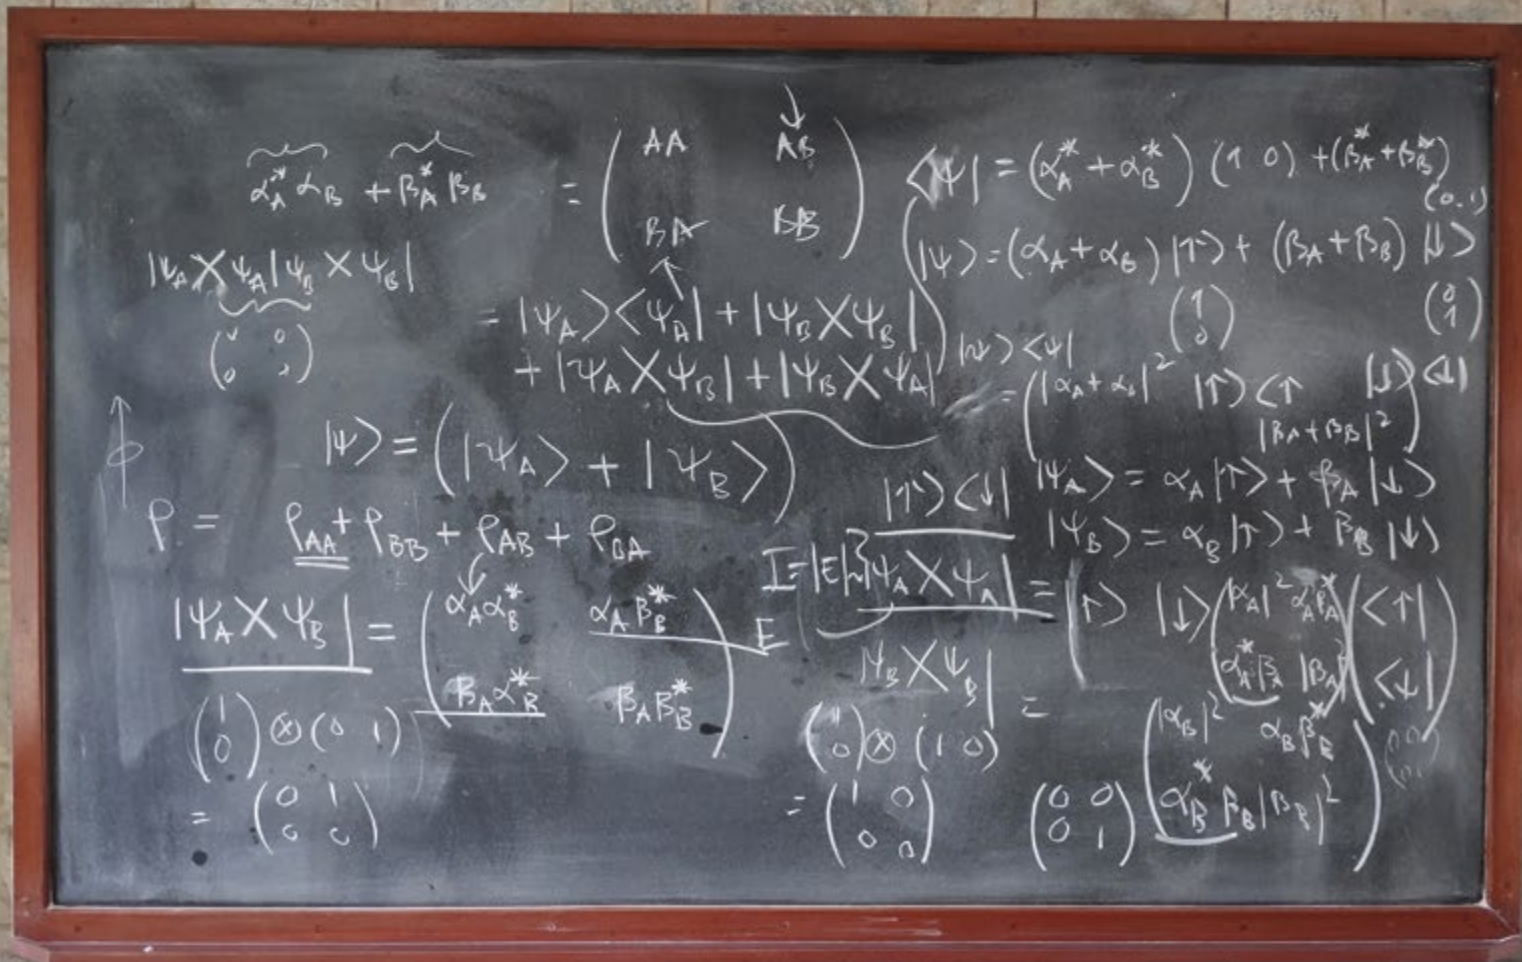 α_A^* α_B + β_A^* β_B = ( AA AB
BA BB )
|ψ_A⟩⟨ψ_A|ψ_B⟩⟨ψ_B|
= |ψ_A⟩⟨ψ_A| + |ψ_B⟩⟨ψ_B|
+ |ψ_A⟩⟨ψ_B| + |ψ_B⟩⟨ψ_A|
|ψ⟩ = (|ψ_A⟩ + |ψ_B⟩)
ρ = ρ_AA + ρ_BB + ρ_AB + ρ_BA
|ψ_A⟩⟨ψ_B| = ( α_A α_B^* α_A β_B^*
β_A α_B^* β_A β_B^* ) E
( 1
0 ) ⊗ ( 0 1 )
= ( 0 1
0 0 )
⟨ψ| = (α_A^* + α_B^*) (1 0) + (β_A^* + β_B^*)
(0.1)
|ψ⟩ = (α_A + α_B) |↑⟩ + (β_A + β_B) |↓⟩
( 1
0 ) ( 0
1 )
|ψ⟩⟨ψ|
= ( |α_A + α_B|^2 |↑⟩⟨↑ |↓⟩⟨↓|
|β_A + β_B|^2 )
|↑⟩⟨↓|
|ψ_A⟩ = α_A |↑⟩ + β_A |↓⟩
|ψ_B⟩ = α_B |↑⟩ + β_B |↓⟩
I = |E|^2
|ψ_A⟩⟨ψ_A| = ( |↑⟩ |↓⟩ ( |α_A|^2 α_A β_A^*
α_A^* β_A |β_A|^2 ) ( ⟨↑|
⟨↓| )
|ψ_B⟩⟨ψ_B| = ( |α_B|^2 α_B β_B^*
α_B^* β_B |β_B|^2 )
( 1
0 ) ⊗ ( 1 0 )
= ( 1 0
0 0 )
( 0 0
0 1 )